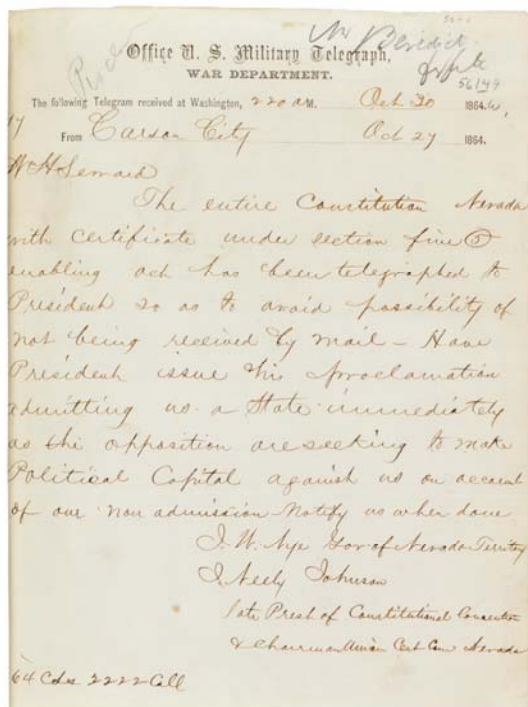 Mr Benedict
Office U. S. Military Telegraph,
WAR DEPARTMENT.
56149
The following Telegram received at Washington, 220 AM. Oct 30 1864.
17 From Carson City Oct 29 1864.
W H Seward
The entire Constitution Nevada
with certificate under section five (5)
enabling act has been telegraphed to
President so as to avoid possibility of
not being received by mail – Have
President issue his proclamation
admitting us a State immediately
as the opposition are seeking to make
Political Capital against us on account
of our non admission Notify us when done
J. W. Nye Gov of Nevada Territory
J Neely Johnson
late Prest of Constitutional Convention
& chairman Union Cent Com Nevada
64 2222 Coll